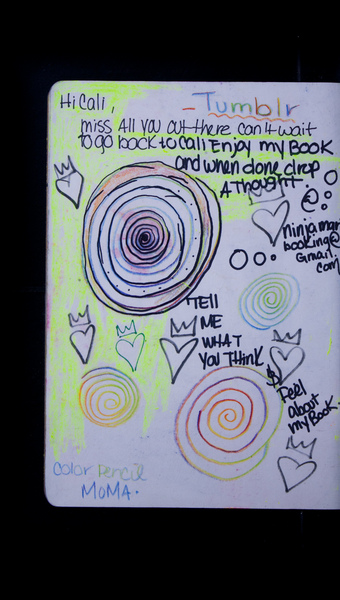 Hi Cali,
- Tumblr
miss All you out there can't wait
to go back to Cali Enjoy my Book
and when done drop
A thought.
ninja mar
booking@
Gmail.
com
TELL
ME
WHAT
YOU THINK
&
Feel
about
my Book.
Color Pencil
MoMA.